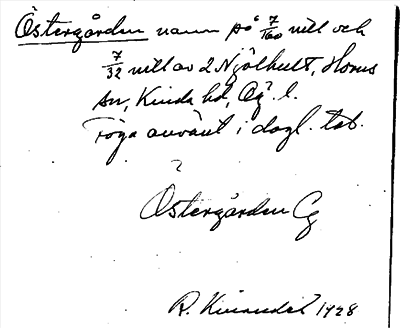 Östergården namn på 7/160 mtl och
7/32 mtl av 2 Njölhult, Horns
sn, Kinda hd, Ög. l.
Föga använt i dagl. tal.
Östergården Ög
R. 1928